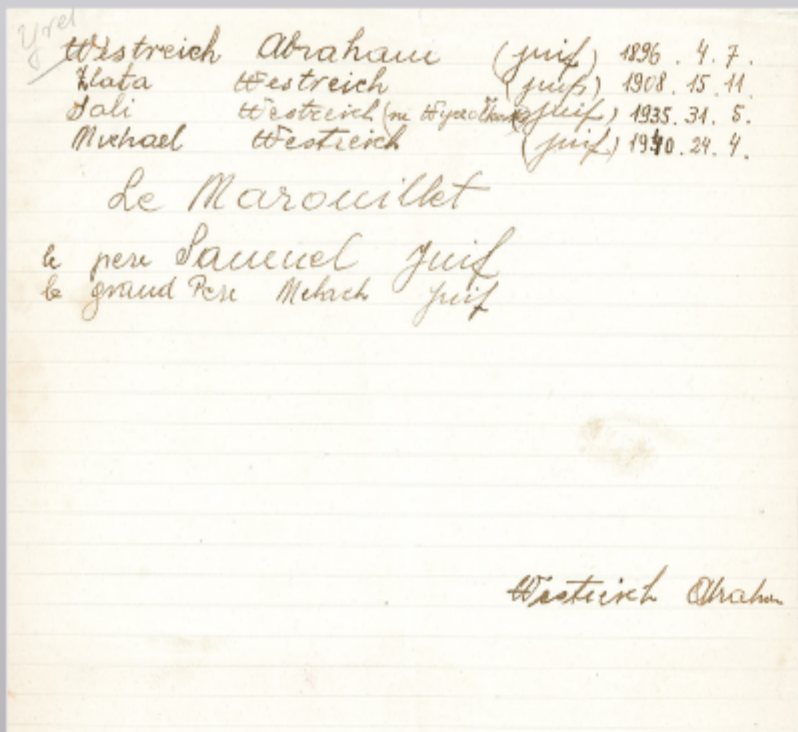 Westreich Abraham (juif) 1896. 4. 7.
Zlata Westreich (juif) 1908. 15. 11.
Sali Westreich (juif) 1935. 31. 5.
Michael Westreich (juif) 1940. 24. 4.
Le Marouillet
le pere Samuel Juif
le grand Pere Juif
Westreich Abraham